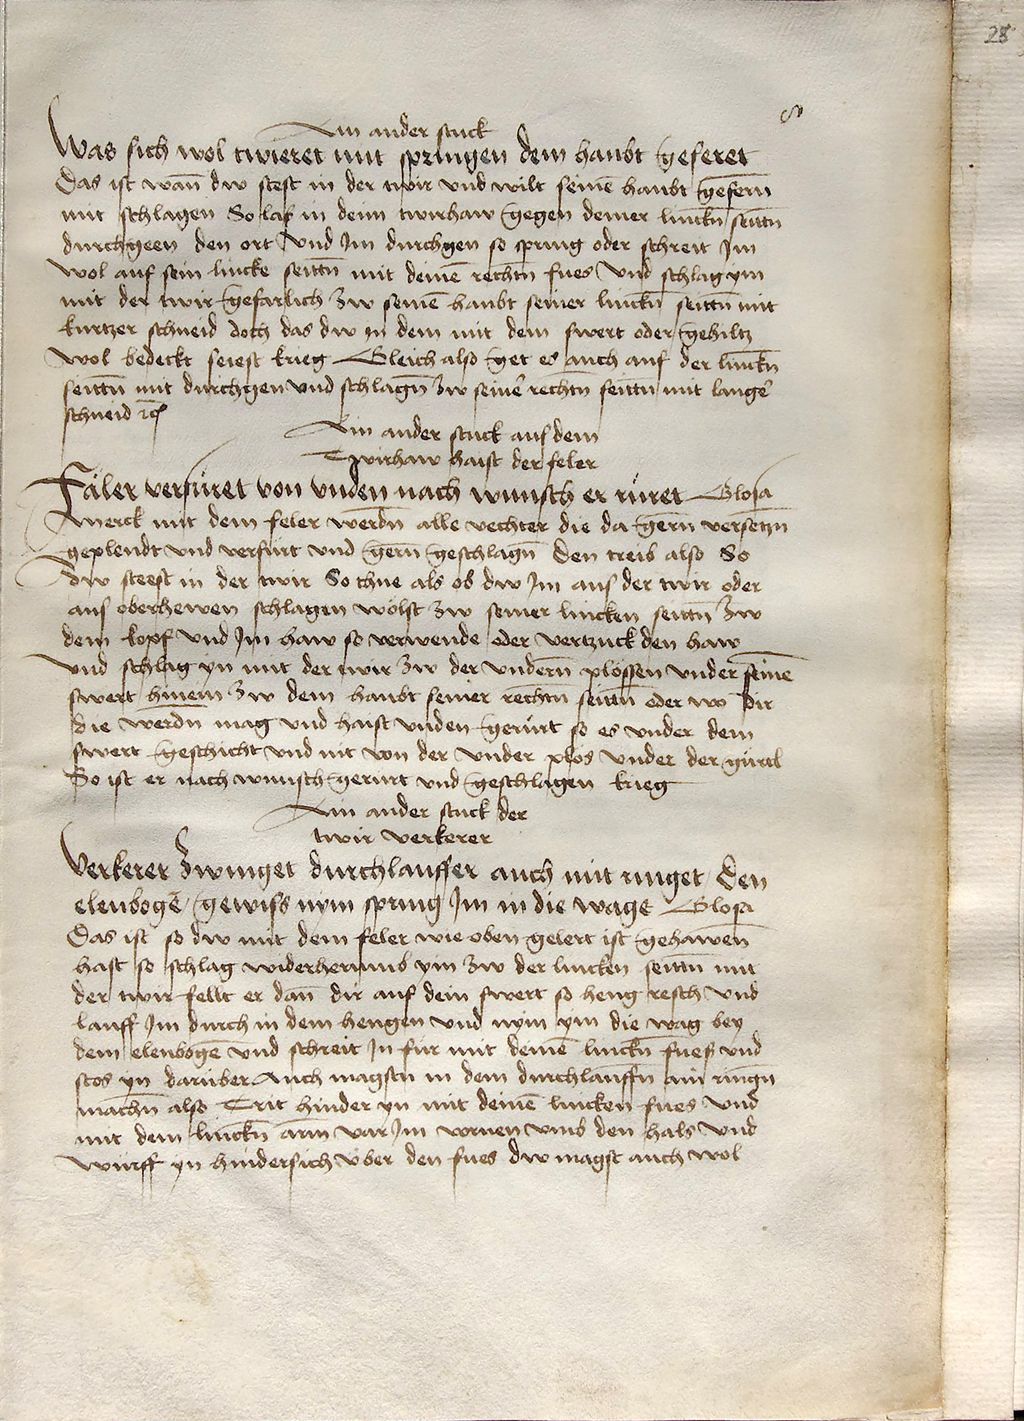 28
8
Ain ander stuck
Was sich wol twieret mit springen dem haubt geferet
Das ist wan̄ dw stest in der twir vnd wilt seinē haubt gefern̄
mit schlagen So las in denn twirhaw gegen deiner linckn̄ seittn̄
durchgeen den ort vnd Im durchgen so spring oder schreit Im
wol auf sein lincke seittn̄ mit deinē rechtn̄ fues vnd schlag ym
mit der twir gefarlich zw seinē haubt seiner linckn̄ seittn̄ mit
kurtzer schneid doch das dw in dem mit dem swert oder gehiltz
wol bedeckt seiest krieg Gleich also get es auch auf der linckn̄
seittn̄ mit durchgen vnd schlagn̄ zw seinē rechtn̄ seittn̄ mit langē
schneid ꝛcꝭ
Ain ander stuck aus dem
Twirhaw haist der feler
Fäler verfüret von vnden nach wunsch er rüret Glosa
Merck mit dem feler werdn̄ alle vechter die da gern̄ versetzn̄
geplendt vnd verfürt vnd gern̄ geschlagn̄ Den treib also So
dw steest in der twir So thue als ob dw Im aus der twir oder
aus oberhewen schlagen wölst zw seiner lincken seittn̄ zw
dem kopf vnd Im haw so verwende oder vertzuck den haw
vnd schlag yn mit der twir zw der vndern̄ plössen vnder seinē
swert hinein zw dem haubt seiner rechtn̄ seittn̄ oder wo dir
die werdn̄ mag vnd haist vnden gerürt so es vnder dem
swert geschicht vnd nit von der vnder plös vnder der gürtl
So ist er nach wunsch gerürt vnd geschlagen krieg
Ain ander stuck der
twir verkerer
Verkerer zwinget durchlauffer auch mit ringet den
elenbogē gewiss nym spring Im in die wage Glosa
Das ist so dw mit dem feler wie oben gelert ist gehawen̄
hast so schlag widerherumb ym zw der lincken seittn̄ mit
der twir fellt er dan̄ dir auf dein swert so heng resch vnd
lauff Im durch in dem hengen vnd nym ym die wag bey
dem elenbogē vnd schreit In für mit deinē linckn̄ fues vnd
stos yn darüber Auch magstu in dem durchlauffn̄ ain ringn̄
machn̄ also Trit hinder yn mit deinē lincken fues vnd
mit dem linckn̄ arm var Im vornen vmb den hals vnd
würff yn hindersich über den fues dw magst auch wol